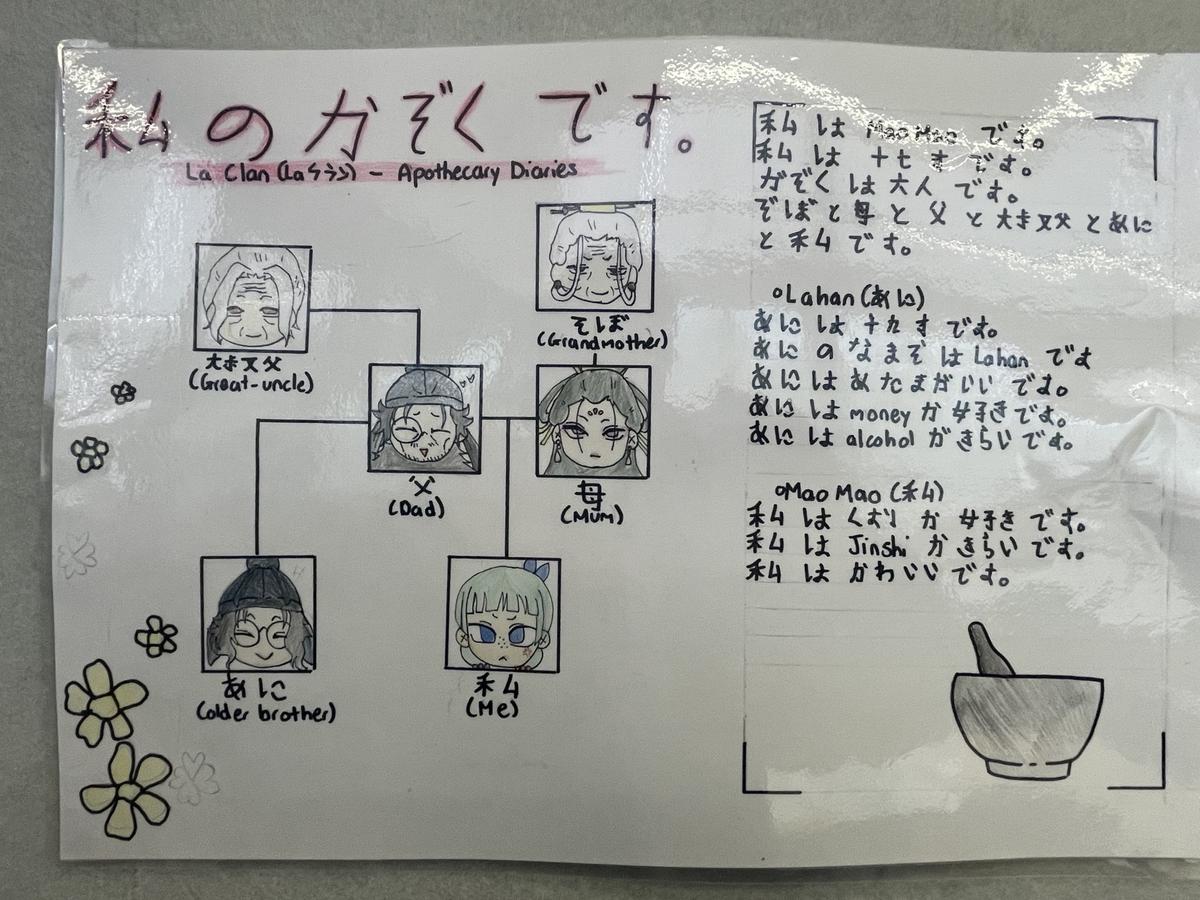 私のかぞくです。
La Clan (Laクラン) - Apothecary Diaries
大き叉父
(Great-uncle)
そしぼ
(Grandmother)
父
(Dad)
母
(Mum)
あに
(older brother)
私
(Me)
私は Mao Mao です。
私は十七才です。
かぞくは六人です。
そぼと母と父と大き叉父とあに
と私です。
Lahan (あに)
あには十九才です。
あにのなまえは Lahan です
あにはあたまがいいです。
あには money が好きです。
あには alcohol がきらいです。
Mao Mao (私)
私はくすりが好きです。
私は Jinshi がきらいです。
私はかわいいです。